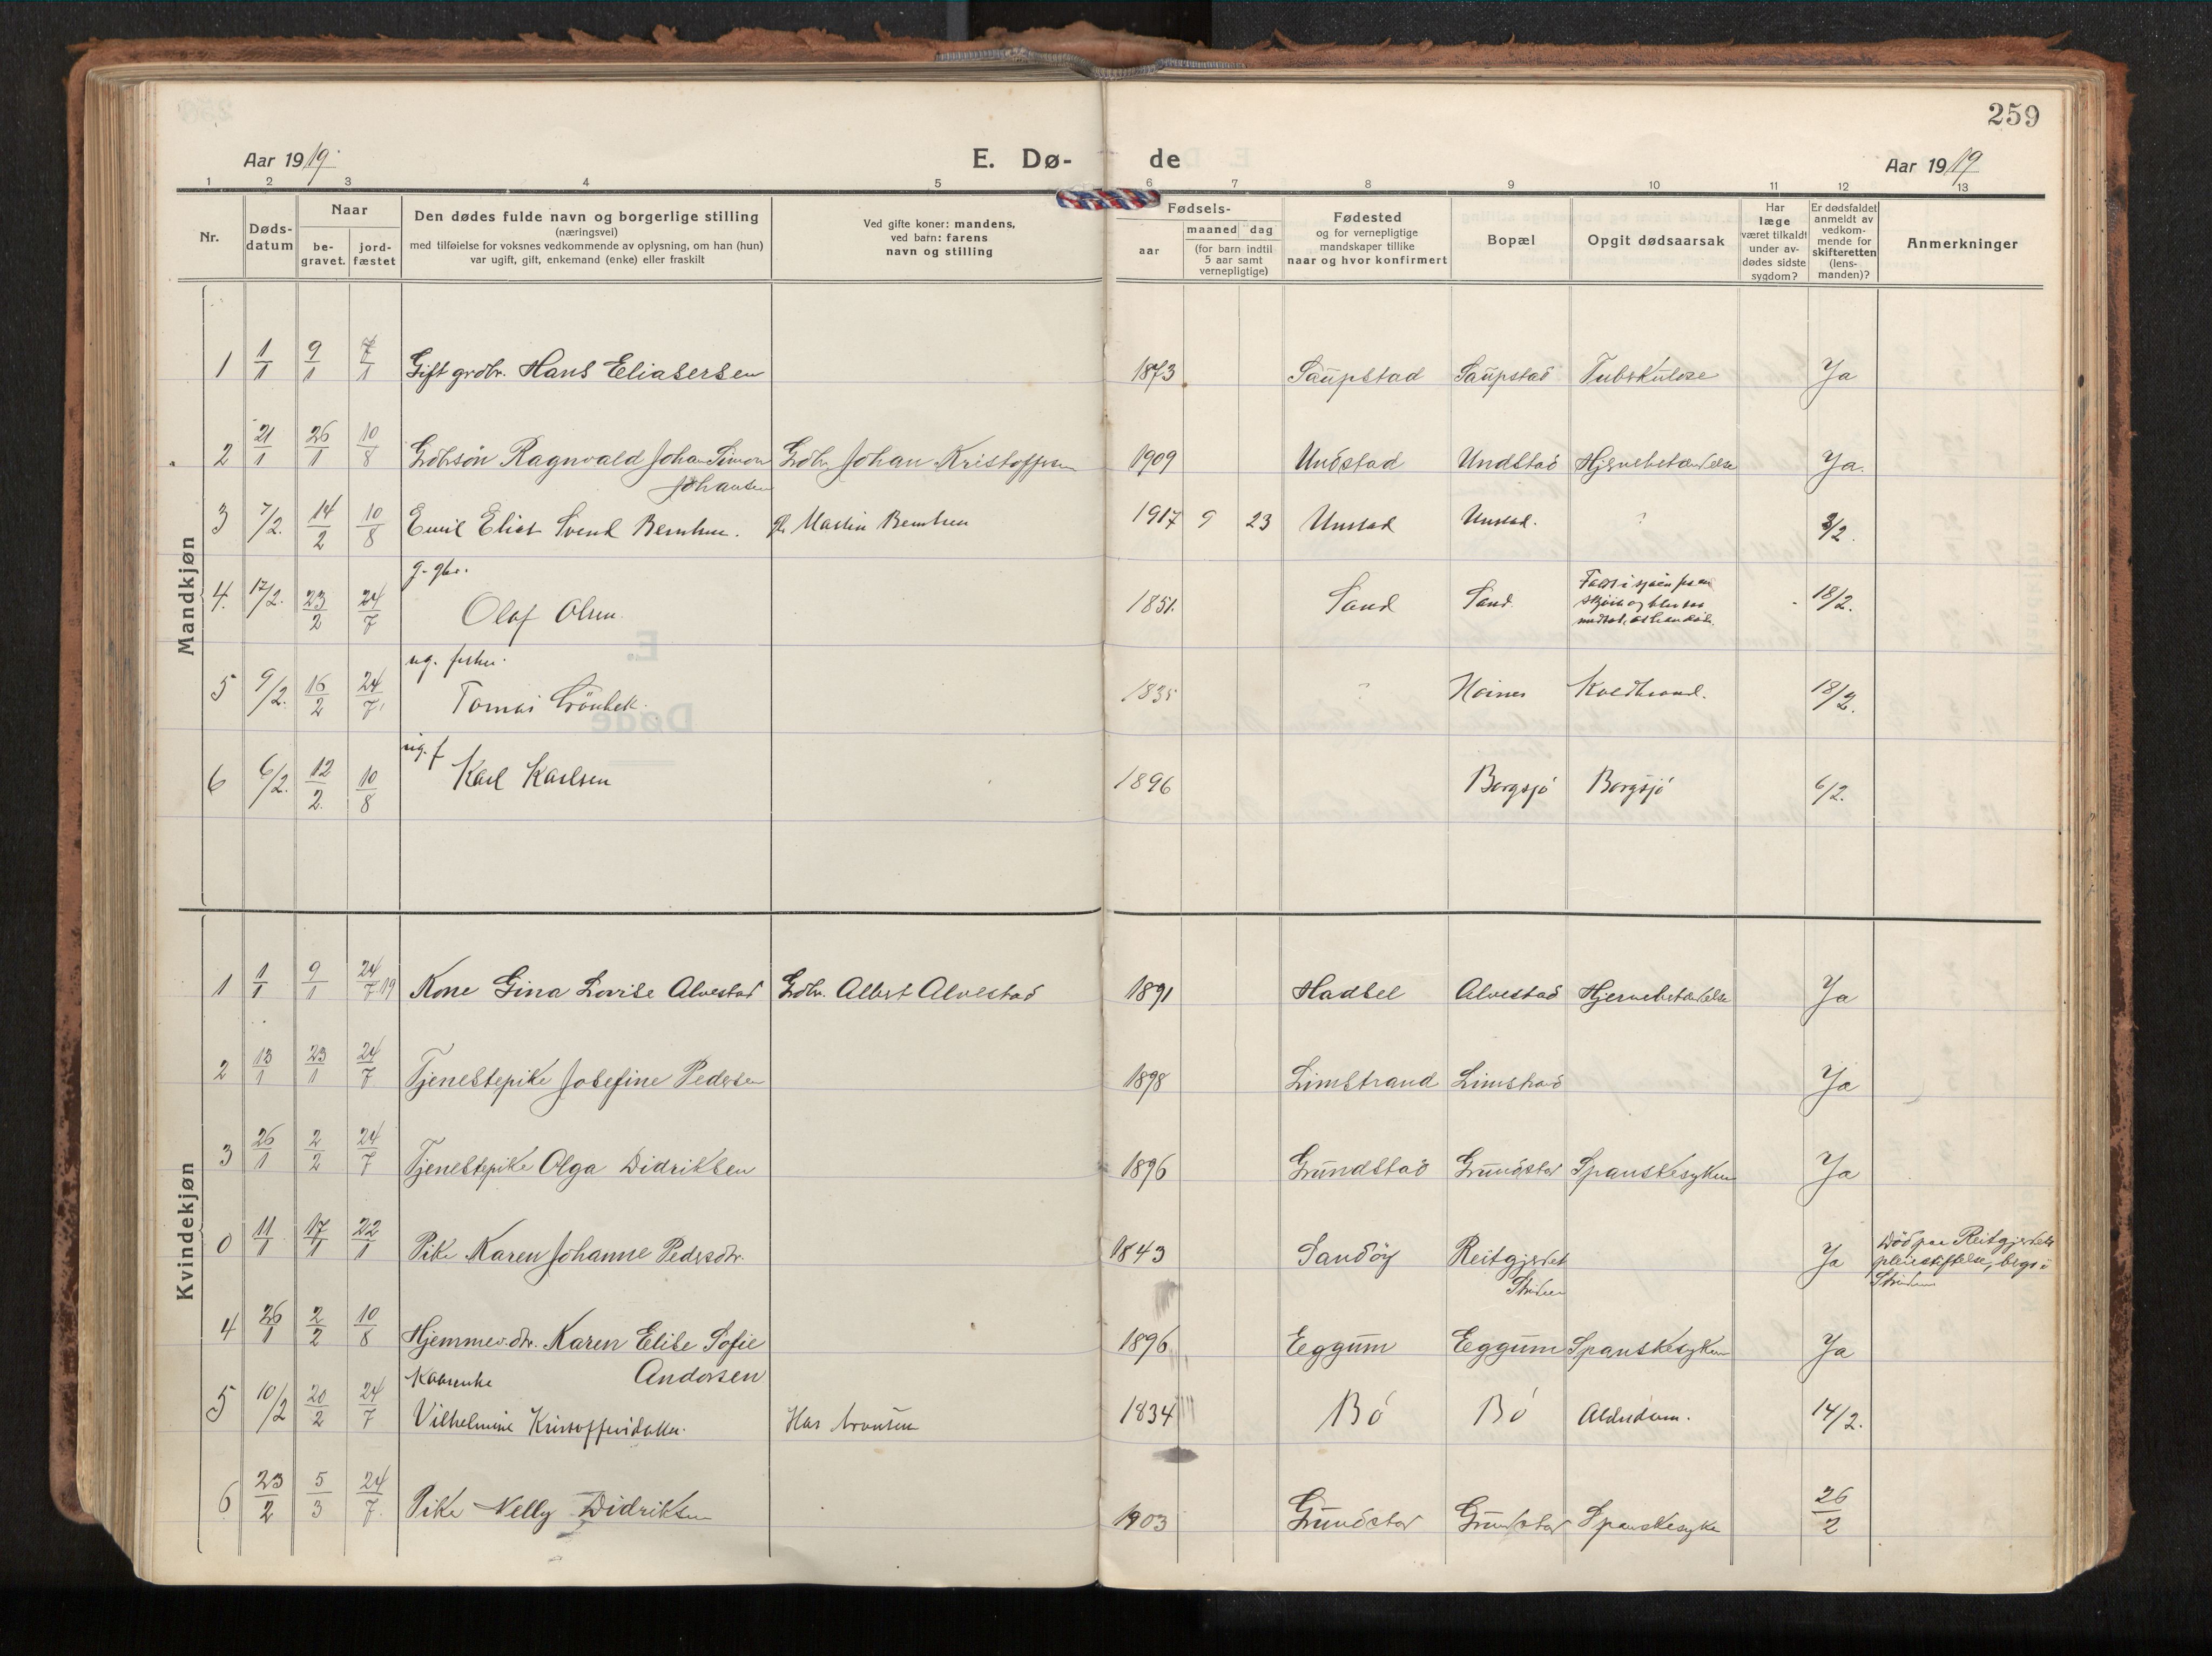 259
Aar 1919.
E. Dø-
de
Aar 1919
1 2 3 4 5 6 7 8 9 10 11 12 13
Nr.
Døds-
datum
Naar
be-
gravet.
jord-
fæstet
Den dødes fulde navn og borgerlige stilling
(næringsvei)
med tilføielse for voksnes vedkommende av oplysning, om han (hun)
var ugift, gift, enkemand (enke) eller fraskilt
Ved gifte koner: mandens,
ved barn: farens
navn og stilling
Fødsels-
aar
maaned dag
(for barn indtil
5 aar samt
vernepligtige)
Fødested
og for vernepligtige
mandskaper tillike
naar og hvor konfirmert
Bopæl
Opgit dødsaarsak
Har
læge
været tilkaldt
under av-
dødes sidste
sygdom?
Er dødsfaldet
anmeldt av
vedkom-
mende for
skifteretten
(lens-
manden)?
Anmerkninger
Mandkjøn
1 1/1 9/1 7/1 Gift grdbr. Hans Eliasersen 1873 Saupstad Saupstad Tubskulose Ja
2 21/1 26/1 10/8 Gdbrsøn Ragnvald Johan Simon Gdbr. Johan Kristoffersen 1909 Undstad Undstad Hjernebetændelse Ja.
Johansen
3 7/2. 14/2 10/8 Emil Elias Svend Berntsen. Martin Berntsen 1917 9 23 Unstad Unstad. ? 3/2.
g. gbr.
4. 17/2. 23/2 24/7 Olaf Olsen. 1851. Sand Sand 18/2.
ug. fisker.
5 9/2. 16/2 24/7 Tomas Grönbek. 1835 ? Koldbrand. 18/2.
ug. f
6 6/2. 12/2. 10/8 Karl Karlsen 1896 Borgsjö Borgsjö 6/2.
Kvindekjøn
1 1/1 9/1 24/7 19 Kone Gina Lovise Alvestad Gdbr. Albert Alvestad 1891 Hadsel Alvestad Hjernebetændelse Ja
2 13/1 23/1 24/7 Tjenestepike Josefine Pedersen 1898 Limstrand Limstrand Ja
3 26/1 2/2 24/7 Tjenestepike Olga Didriksen 1896 Grundstad Grundstad Spanskesyken Ja
0 11/1 17/1 22/1 Pike Karen Johanne Pedersdtr. 1843 Sandöy Reitgjerdet Ja Död paa Reitgjerdets
Strinden pleiestiftelse, begr. i
Strinden
4 26/1 2/2 10/8 Hjemmev. dtr. Karen Elise Sofie 1896 Eggum Eggum Spanskesyken Ja
Andorsen
Kaarenke
5 10/2 20/2 24/7 Vilhelmine Kristoffersdatter. 1834 Bö Bö Alderdom. 14/2.
6 23/2 5/3 24/7. Pike Nelly Didriksen 1903 Grundstad Grundstad Spanskesyke 26/2